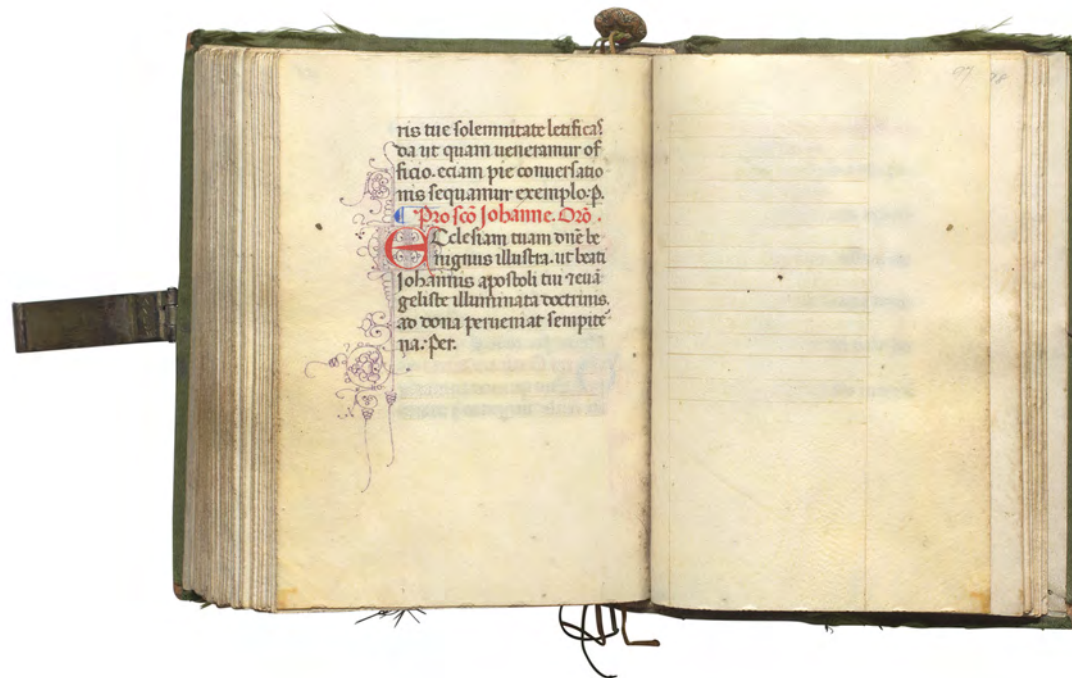 ris tue solemnitate letificas
da ut quam ueneramur of
ficio. eciam pie conuersatio
nis sequamur exemplo. P.
Pro scõ Johanne. Orõ.
ECclesiam tuam dñe be
nignus illustra. ut beati
Johannis apostoli tui ⁊ euã
geliste illuminata doctrinis.
ad dona perueniat sempite
na. Per.
97 98